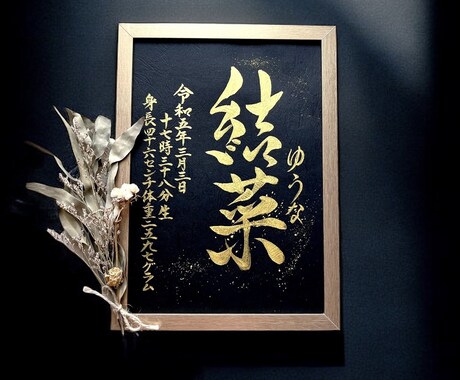 結菜
ゆうな
令和五年三月三日
十七時三十八分生
身長四十六センチ体重二五九七グラム